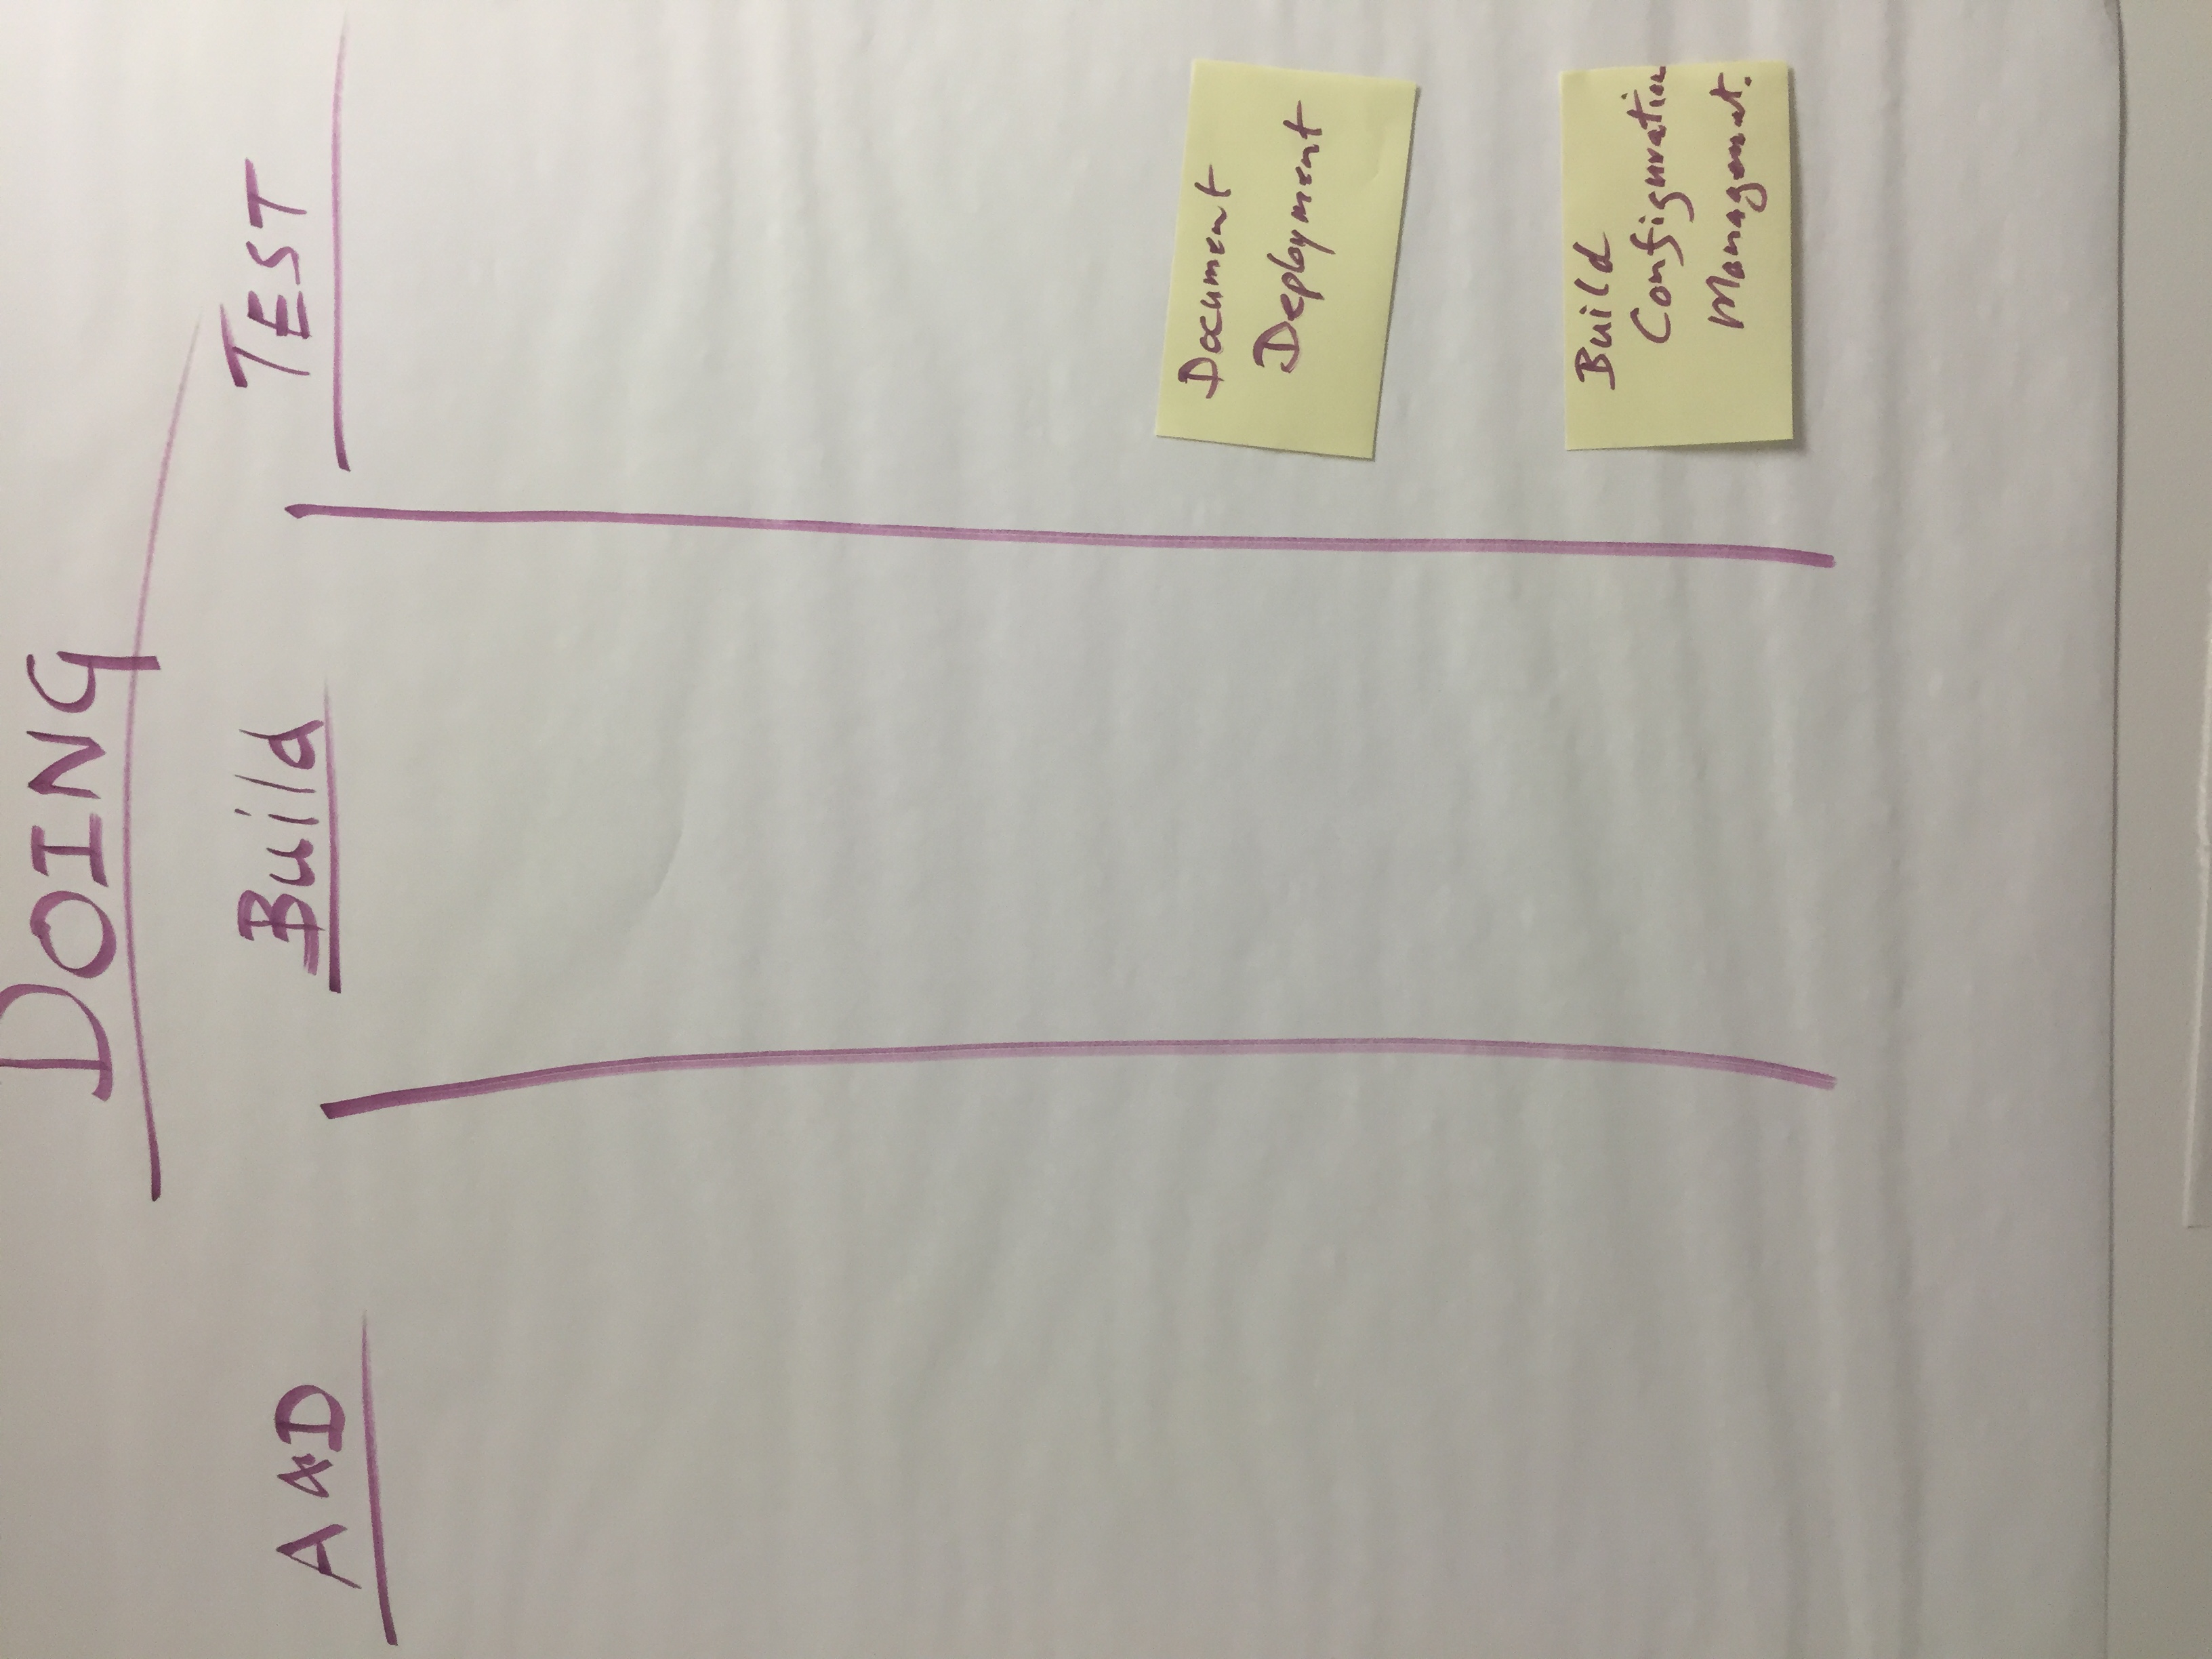 DOING
A&D
Build
TEST
Document
Deployment
Build
Configuration
Management.